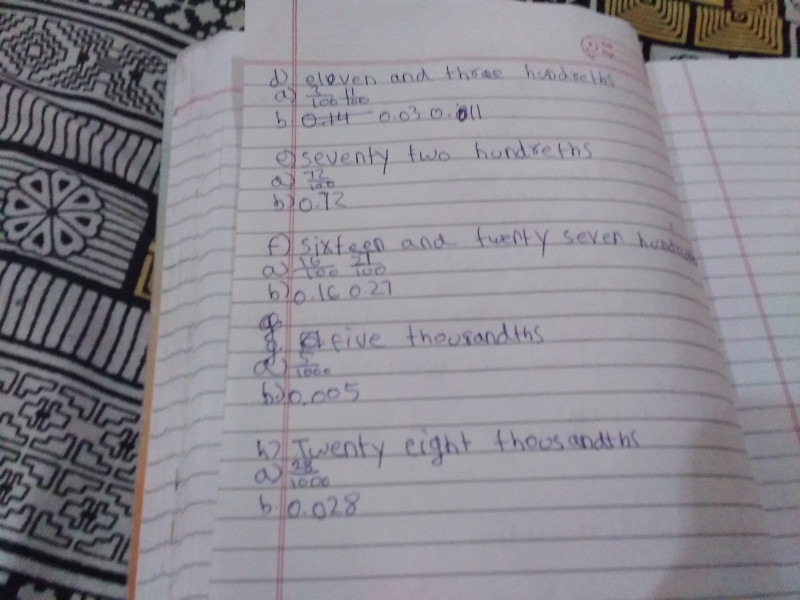 d) eleven and three hundreths
a) 3/100 11/100
b 0.14 0.03 0.011
e) seventy two hundreths
a) 72/100
b) 0.72
f) sixteen and twenty seven
a) 16/100 27/100
b) 0.16 0.27
g. five thousandths
a) 5/1000
b.) 0.005
h) Twenty eight thousandths
a) 28/1000
b. 0.028